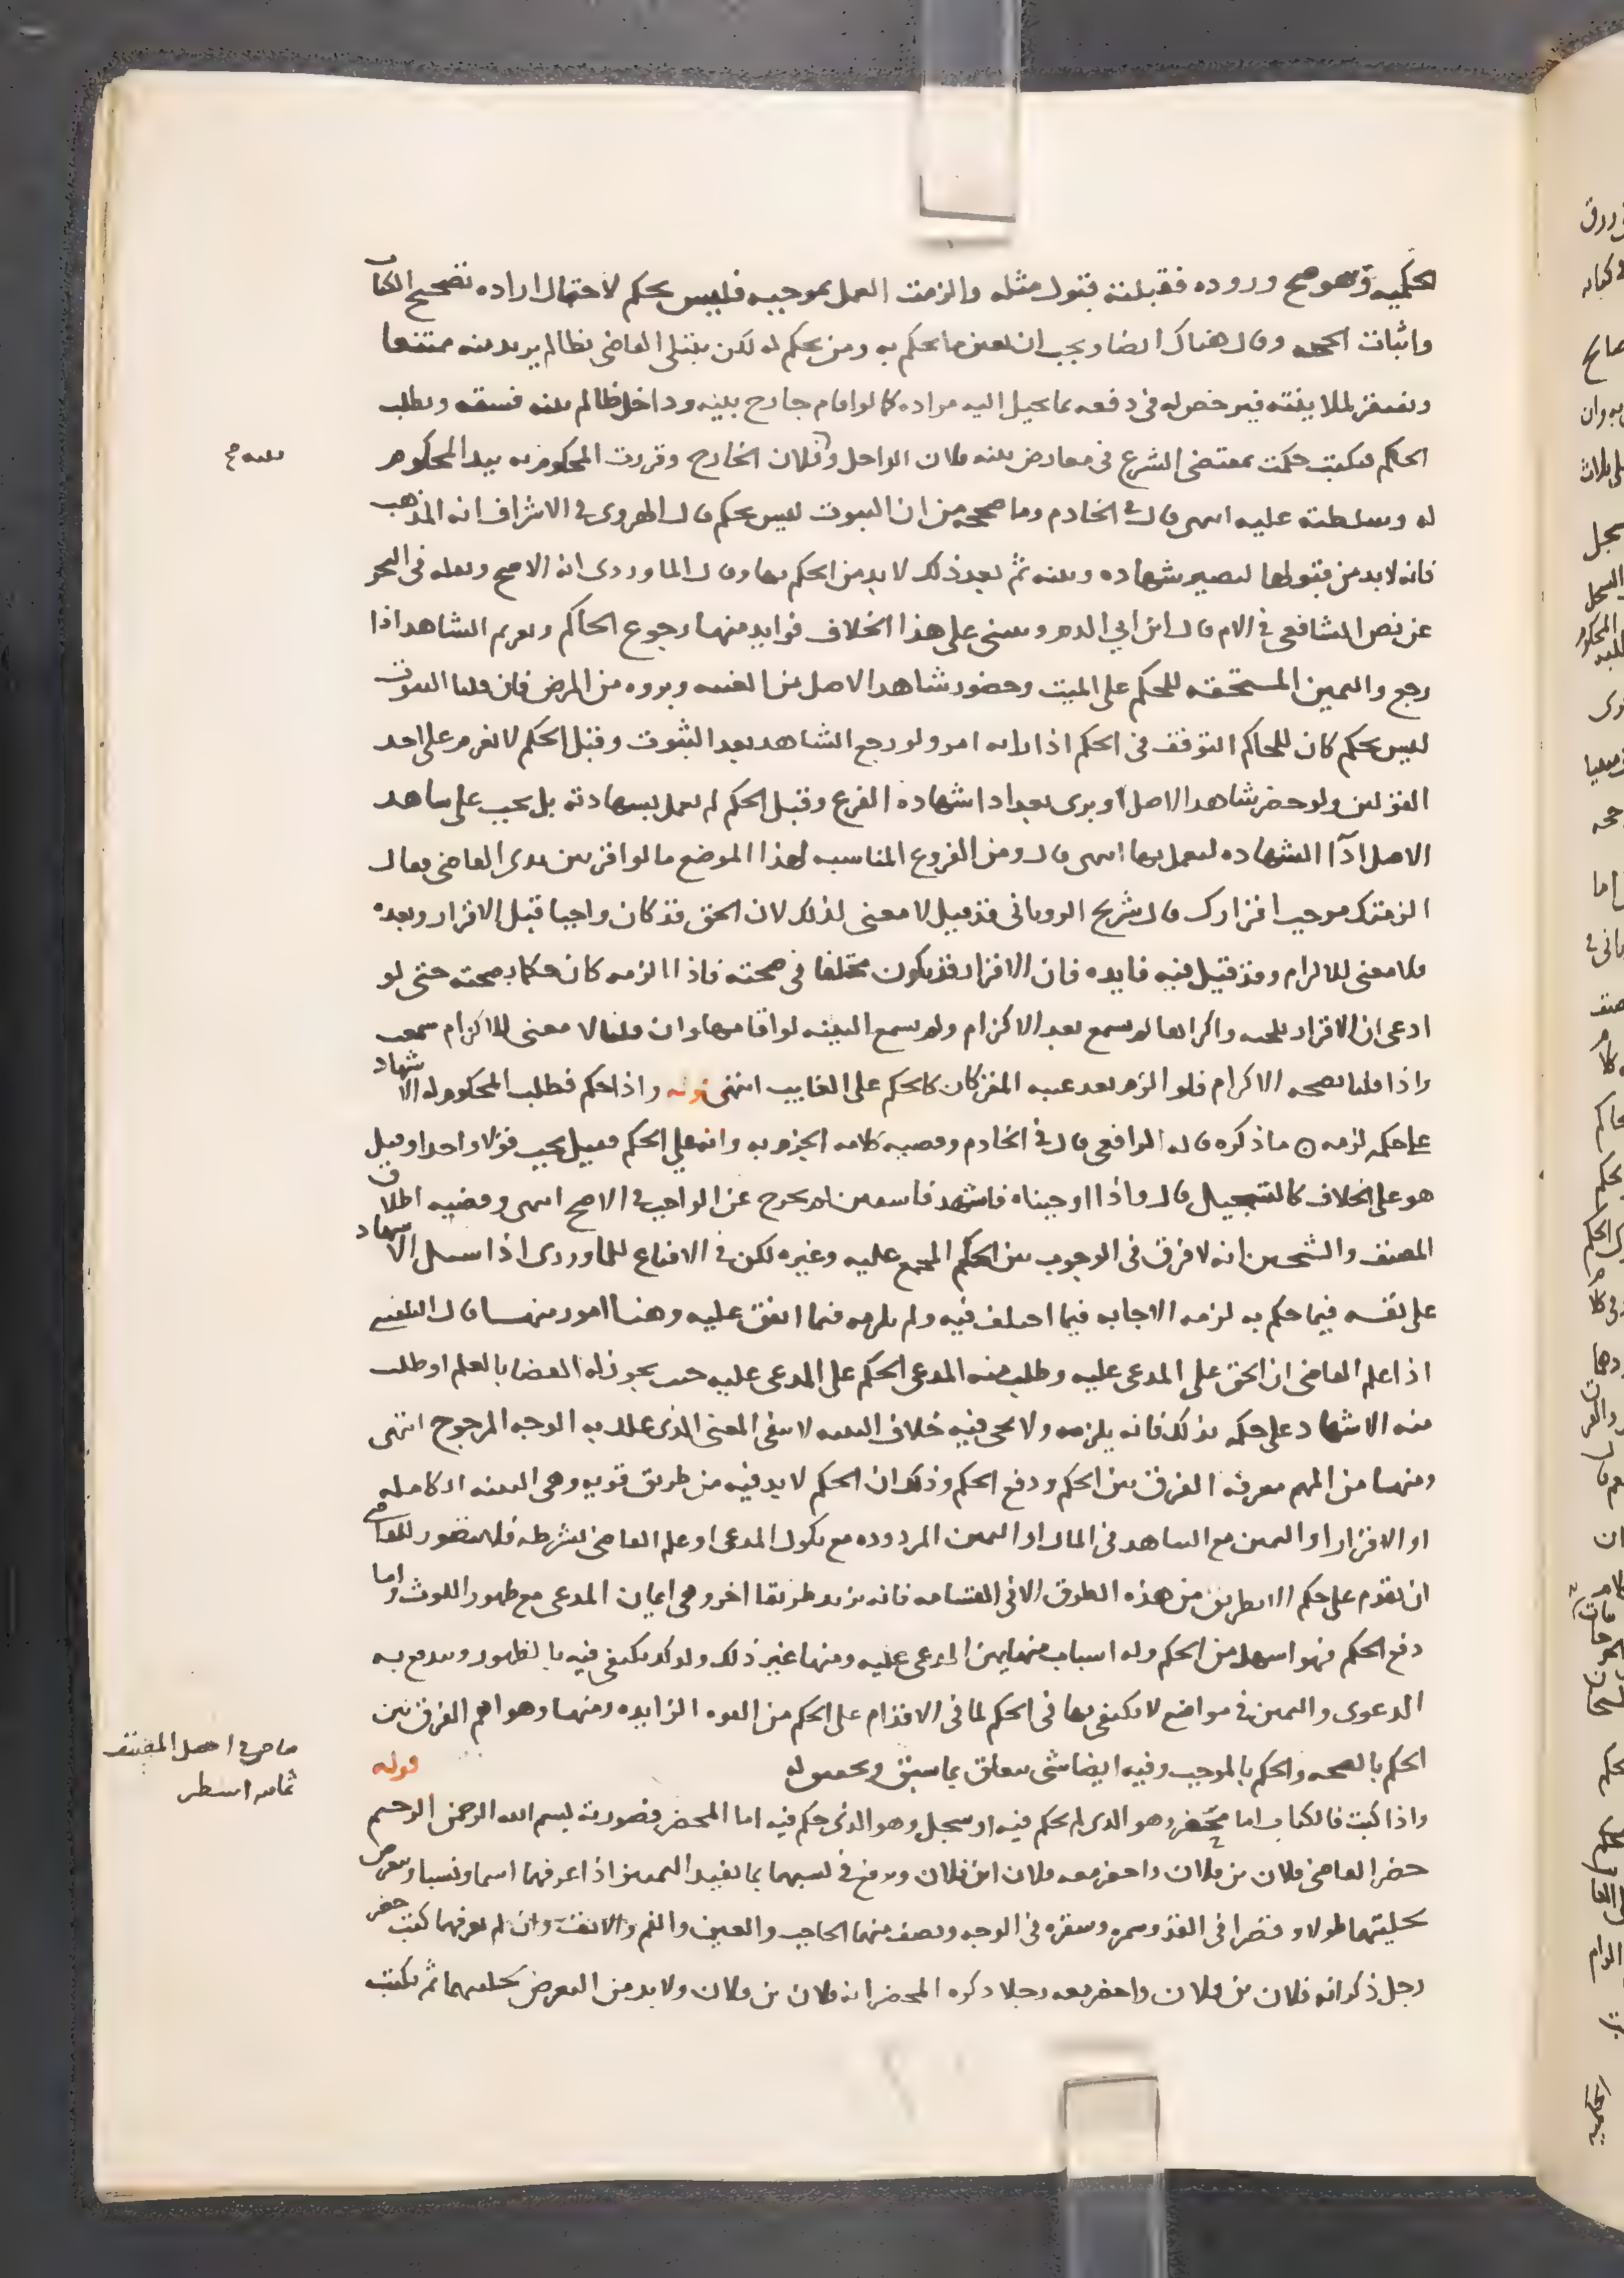 الحكميه وهو صح وروده فقبلته قبول مثله والزمت العمل بموجبه فليس بحكم لاحتمال اراده تصحيح الكتاب
واثبات الحجه وقال هناك ايضا ويجب ان يعين ما يحكم به ومن يحكم له لكن يبتلى القاضى بظالم يريد منه ممتنعا
ويفتقر لملاينته فيرخص له فى دفعه بما يخيل اليه مراده كما لو اقام خارج بينه وداخل ظالم بينه فسقه وطلب
الحكم فيكتب حكمت بمقتضى الشرع فى معارض بينه فلان الداخل وفلان الخارج وقررت المحكوم به بيد المحكوم
بينه صح
له وسلطته عليه انتهى قال فى الخادم وما صححه من ان الثبوت ليس بحكم قال الهروى فى الاشراف انه المذهب
فانه لا بد من قبولها لتصير شهاده وبينه ثم بعد ذلك لا بد من الحكم بها وقال الماوردى انه الاصح ونقله فى البحر
عن نص الشافعى فى الام قال ابن ابي الدم وينبنى على هذا الخلاف فوايد منها رجوع الحاكم وتغريم الشاهد اذا
رجع واليمين المستحقه للحكم على الميت وحضور شاهد الاصل من الغيبه وبروه من المرض فان قلنا الثبوت
ليس بحكم كان للحاكم التوقف فى الحكم اذا رابه امر ولو رجع الشاهد بعد الثبوت وقبل الحكم لا يغرم على احد
القولين ولو حضر شاهد الاصل او برى بعد ادا شهاده الفرع وقبل الحكم لم يعمل بشهادته بل يجب على شاهد
الاصل ادآ الشهاده ليعمل بها انتهى قال ومن الفروع المناسبه لهذا الموضع ما لو اقر بين يدى القاضى فقال
الزمتك موجب اقرارك قال شريح الرويانى فقد قيل لا معنى لذلك لان الحق قد كان واجبا قبل الاقرار وبعده
فلا معنى للالزام وقد قيل فيه فايده فان الاقرار قد يكون مختلفا فى صحته فاذا الزمه كان حكما بصحته حتى لو
ادعى ان الاقرار واكراها لم يسمع بعد الاكرام ولم يسمع البينه لو اقامها وان قلنا لا معنى للاكرام سمعت
واذا قلنا بصحه الاكرام فلو الزم بعد غيبه المقر كان كالحكم على الغايب انتهى قوله واذا حكم فطلب المحكوم له الاشهاد
على حكمه لزمه ما ذكره قاله الرافعى قال فى الخادم وقضيه كلامه الجزم به وانه على الحكم فقيل يجب قولا واحدا وقيل
هو على الخلاف كالتسجيل قال واذا اوجبناه فاشهد فاسقين لم يخرج عن الواجب فى الاصح انتهى وقضيه اطلاق
المصنف والشيخين انه لا فرق فى الوجوب بين الحكم المجمع عليه وغيره لكن فى الاقناع للماوردى اذا سيل الاشهاد
على نفسه فيما حكم به لزمه الاجابه فيما اختلف فيه ولم يلزمه فيما اتفق عليه وهنا امور منها قال البلقينى
اذا علم القاضى ان الحق على المدعى عليه وطلب منه المدعى الحكم على المدعى عليه حيث يجوز له القضا بالعلم او طلب
منه الاشهاد على حكمه بذلك فانه يلزمه ولا يجى فيه خلاف البينه لانتفى المعنى الذى علل به الوجه المرجوح انتهى
ومنها من المهم معرفة الفرق بين الحكم ودفع الحكم وذلك ان الحكم لا بد فيه من طريق قويه وهى البينه الكامله
او الاقرار او اليمين مع الشاهد فى المال او اليمين المردوده مع نكول المدعى او علم القاضى بشرطه فلا يتصور للقاضى
ان يقدم على حكم الا بطريق من هذه الطرق الا فى القسامه فانه يزيد طريقا اخر وهى ايمان المدعى مع ظهور اللوث واما
دفع الحكم فهو اسهل من الحكم وله اسباب منها يمين المدعى عليه ومنها غير ذلك ولذلك يكتفى فيه بالظهور ويندفع به
الدعوى واليمين فى مواضع لا يكتفى بها فى الحكم لما فى الاقدام على الحكم من القوه الزايده ومنها وهو اهم الفرق بين
الحكم بالصحه والحكم بالموجب وفيه ايضا شى يتعلق بما سبق قوله
بياض فى اصل المصنف
ثمانيه اسطر
واذا كتب فالكتاب اما محضر وهو الذى لم يحكم فيه او سجل وهو الذى حكم فيه اما المحضر فصورته بسم الله الرحمن الرحيم
حضر القاضى فلان بن فلان واحضر معه فلان ابن فلان ويرفع فى نسبهما بما يفيد التمييز اذا عرفهما اسما ونسبا ويتعرض
لحليتهما طولا وقصرا فى القد وسمره وشقره فى الوجه ويصف منهما الحاجب والعين والفم والانف وان لم يعرفهما كتب حضر
رجل ذكر انه فلان بن فلان واحضر معه رجلا ذكره المحضر انه فلان بن فلان ولا بد من التعرض لحليتهما ثم يكتب